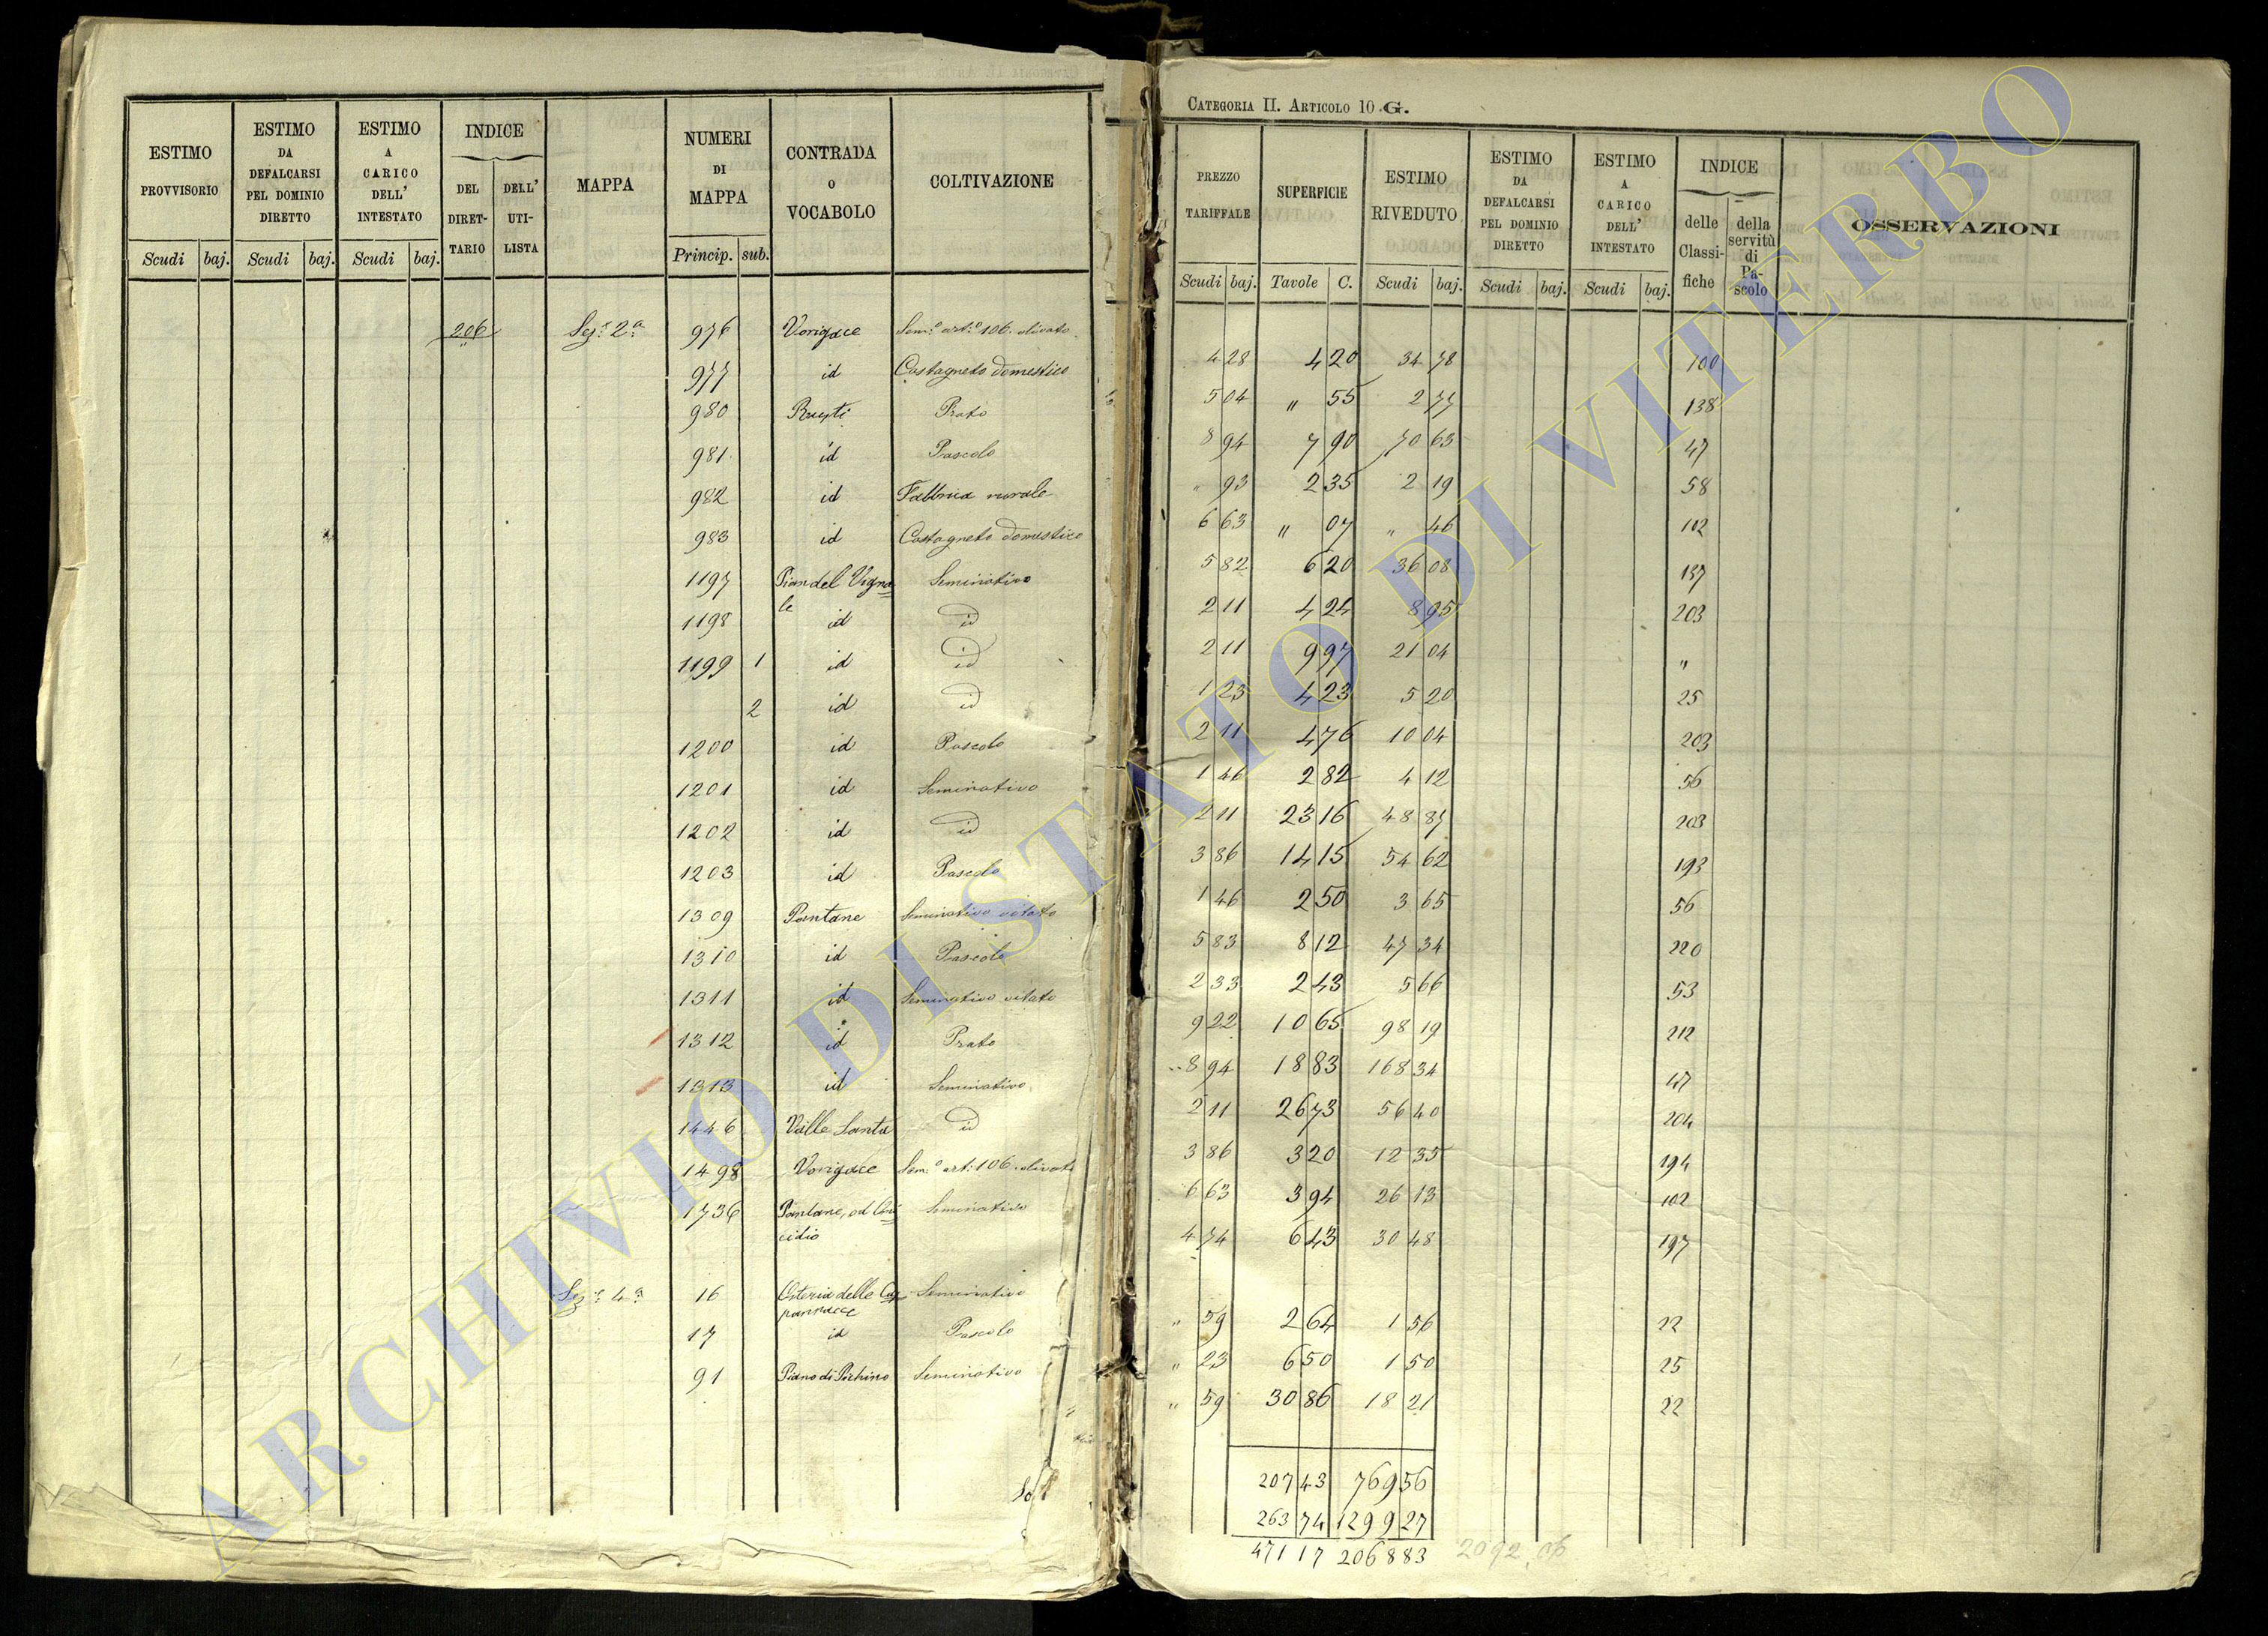 CATEGORIA II. ARTICOLO 10 G.
ESTIMO PROVVISORIO Scudi baj.
ESTIMO DA DEFALCARSI PEL DOMINIO DIRETTO Scudi baj.
ESTIMO A CARICO DELL' INTESTATO Scudi baj.
INDICE DEL DIRETTARIO DELL' UTILISTA
MAPPA
NUMERI DI MAPPA Princip. sub.
CONTRADA O VOCABOLO
COLTIVAZIONE
PREZZO TARIFFALE Scudi baj.
SUPERFICIE Tavole C.
ESTIMO RIVEDUTO Scudi baj.
ESTIMO DA DEFALCARSI PEL DOMINIO DIRETTO Scudi baj.
ESTIMO A CARICO DELL' INTESTATO Scudi baj.
INDICE delle Classifiche della servitù di Pascolo
OSSERVAZIONI
206 Sez.e 2a 976 Vorigace Sem.o art.o 106. olivato 4 28 4 20 34 78 100
977 id Castagneto domestico 5 04 " 55 2 77 138
980 Prato 8 94 7 90 70 63 47
981 id Pascolo " 93 2 35 2 19 58
982 id Fabbrica rurale 6 63 " 07 " 46 102
983 id Castagneto domestico 5 82 6 20 36 08 137
1197 Pian del Vigna= Seminativo 2 11 4 24 8 95 203
le
1198 id id 2 11 9 97 21 04 "
1199 1 id id 1 23 4 23 5 20 25
2 id id 2 11 4 76 10 04 203
1200 id Pascolo 1 46 2 82 4 12 56
1201 id Seminativo 2 11 23 16 48 87 203
1202 id id 3 86 14 15 54 62 193
1203 id Pascolo 1 46 2 50 3 65 56
1309 Pantane Seminativo vitato 5 83 8 12 47 34 220
1310 id Pascolo 2 33 2 43 5 66 53
1311 id Seminativo vitato 9 22 10 65 98 19 212
1312 id Prato 8 94 18 83 168 34 47
1313 id Seminativo 2 11 26 73 56 40 204
1446 Valle Santa id 3 86 3 20 12 35 194
1498 Vorigace Sem.o art: 106. olivato 6 63 3 94 26 13 102
1736 Pantane, od Seminativo 4 74 6 43 30 48 197
Sez.e 4a 16 Osteria delle Ca= Seminativo " 59 2 64 1 56 22
pannacce
17 id Pascolo " 23 6 50 1 50 25
91 Piano di Seminativo " 59 30 86 18 21 22
207 43 769 56
263 74 1299 27
471 17 2068 83 2092,06
ARCHIVIO DI STATO DI VITERBO